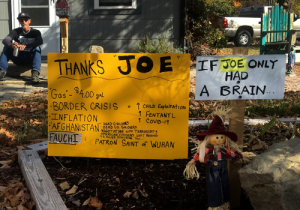 THANKS JOE
"Gas" - $4.00 gal
BORDER CRISIS = ↑ CHILD EXPLOITATION
↑ FENTANYL
COVID-19
INFLATION
AFGHANISTAN
FAUCHI
PATRON SAINT of WUHAN
IF JOE ONLY
HAD
A BRAIN...